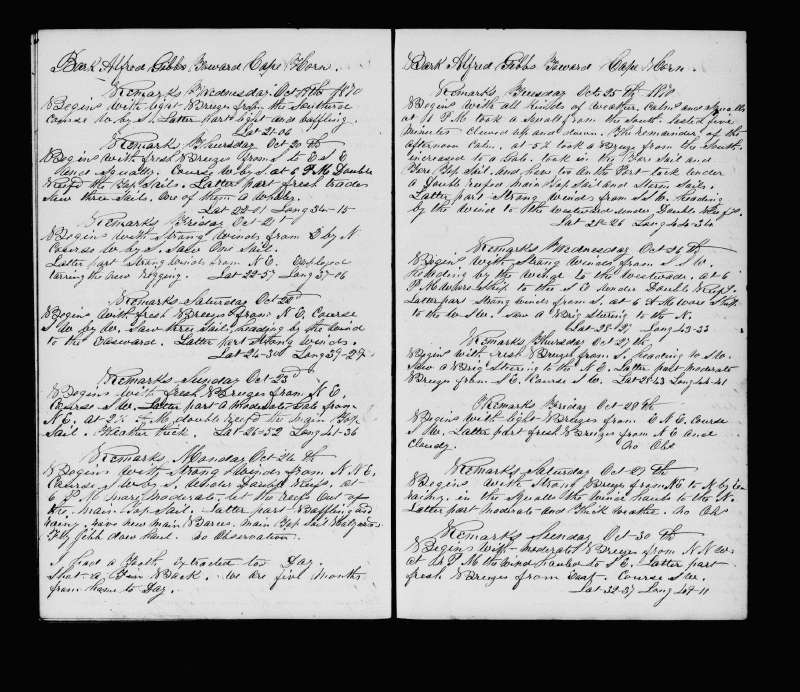 Bark Alfred Gibbs Toward Cape Horn.
Remarks Wednesday Oct 19th 1870
Begins with light Breeze from the Southerd
Course W by S. Latter part light and baffling
Lat 21-06
Remarks Thursday Oct 20th
Begins with fresh Breezes from S to E S E
and squally. Course W by S. at 6 P M Double
Reefd the Top Sails. Latter part fresh trades
Saw three Sails. One of them a whaler.
Lat 22-01 Long 34-15
Remarks Friday Oct 21st
Begins with Strong winds from E by N
Course W by S. Saw One Sail.
Latter part Strong winds from N E. Employed
tarring the new Rigging. Lat 22-57 Long 37-06
Remarks Saturday Oct 22d
Begins with fresh Breezes from N E. Course
S W by W. Saw three Sails heading by the wind
to the Eastward. Latter part Strong winds.
Lat 24-30 Long 39-29
Remarks Sunday Oct 23d
Begins with fresh Breezes from N E.
Course S W. Latter part a moderate Gale from
N E. at double reefd the Main Top
Sail. Weather thick. Lat 26-52 Long 41-36
Remarks Monday Oct 24th
Begins with Strong winds from N N E.
Course S W by S. under Double Reefs. at
6 P M more moderate. let the reefs out of
the Main Top Sail. Latter part Baffling and
rainy. new main Main Top Sail
Fly Jibb down haul. No Observation.
I had a Tooth extracted to Day.
Shot a Back. We are five months
from home to Day.
Bark Alfred Gibbs Toward Cape Horn.
Remarks Tuesday Oct 25th 1870
Begins with all kinds of weather. Calm and squalls
at P M took a Squall from the South. lasted five
minutes Clewed up and down. The remainder of the
afternoon Calm. at 5½ took a Breeze from the South.
increased to a Gale. took in the Fore Sail and
Fore Top Sail. And hove too on the Port tack under
a Double reefed main Top Sail and Storm Sails.
Latter part Strong winds from S S E. heading
by the wind to the westward under Double
Lat 28-26 Long 44-34
Remarks Wednesday Oct 26th
Begins with Strong winds from S S W.
heading by the wind to the westward. at 6
P M wore Ship to the S E under Double Reefs.
Latter part Strong winds from S. at 6 A M wore Ship
to the W S W. Saw a Brig Steering to the N.
Lat 28-27 Long 43-33
Remarks Thursday Oct 27th
Begins with fresh Breezes from S. heading W S W.
Saw a Brig Steering to the N E. Latter part moderate
Breezes from S E. Course S W. Lat 28-43 Long 44-41
Remarks Friday Oct 28th
Begins with light Breezes from E N E. Course
S W. Latter part fresh Breezes from N E and
Cloudy. No Obs
Remarks Saturday Oct 29th
Begins with Strong Breezes from N E to N by E
rainy. in the Squalls the wind hauls to the N.
Latter part moderate and thick weather. No Obs
Remarks Sunday Oct 30th
Begins with moderate Breezes from N N W.
at P M the wind hauled to S E. Latter part
fresh Breezes from East. Course S W.
Lat 32-37 Long 47-11